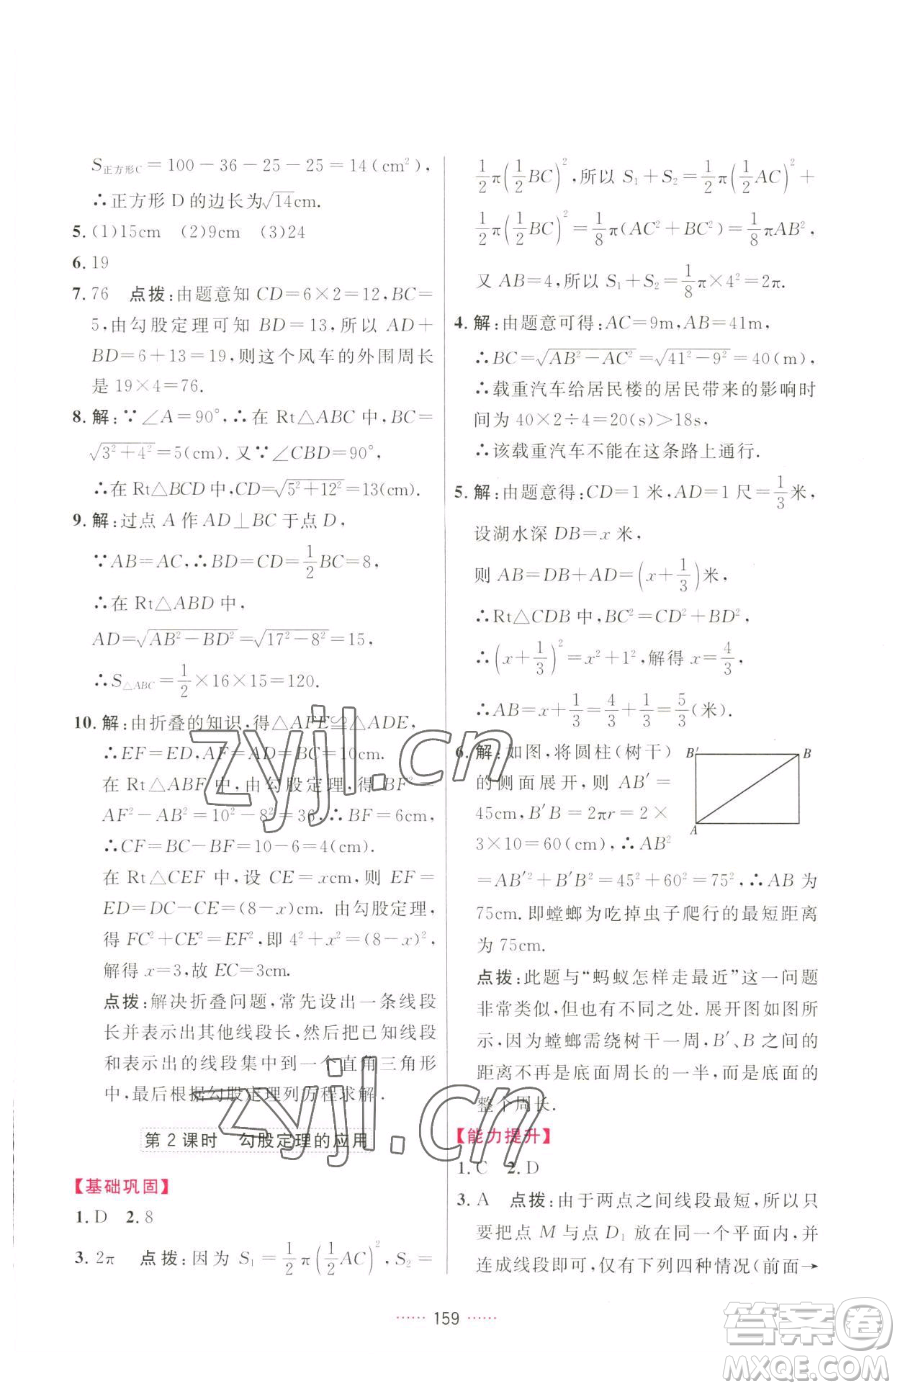 S正方形C=100-36-25-25=14(cm²),
∴正方形 D 的边长为√14cm.
5. (1)15cm (2)9cm (3)24
6. 19
7. 76 点拨:由题意知 CD=6×2=12,BC=
5,由勾股定理可知 BD=13,所以 AD+
BD=6+13=19,则这个风车的外围周长
是 19×4=76.
8. 解:∵∠A=90°,∴在 Rt△ABC 中,BC=
√(3²+4²)=5(cm).又∵∠CBD=90°,
∴在 Rt△BCD 中,CD=√(5²+12²)=13(cm).
9. 解:过点 A 作 AD⊥BC 于点 D,
∵AB=AC,∴BD=CD=1/2BC=8,
∴在 Rt△ABD 中,
AD=√(AB²-BD²)=√(17²-8²)=15,
∴S△ABC=1/2×16×15=120.
10. 解:由折叠的知识,得△AFE≌△ADE,
∴EF=ED,AF=AD=BC=10cm.
在 Rt△ABF 中,由勾股定理,得 BF²=
AF²-AB²=10²-8²=36,∴BF=6cm,
∴CF=BC-BF=10-6=4(cm).
在 Rt△CEF 中,设 CE=xcm,则 EF=
ED=DC-CE=(8-x)cm. 由勾股定理,
得 FC²+CE²=EF²,即 4²+x²=(8-x)²,
解得 x=3,故 EC=3cm.
点拨:解决折叠问题,常先设出一条线段
长并表示出其他线段长,然后把已知线段
和表示出的线段集中到一个直角三角形
中,最后根据勾股定理列方程求解.
第 2 课时 勾股定理的应用
【基础巩固】
1. D 2. 8
3. 2π 点拨:因为 S₁=1/2π(1/2AC)²,S₂=
1/2π(1/2BC)²,所以 S₁+S₂=1/2π(1/2AC)²+
1/2π(1/2BC)²=1/8π(AC²+BC²)=1/8πAB²,
又 AB=4,所以 S₁+S₂=1/8π×4²=2π.
4. 解:由题意可得:AC=9m,AB=41m,
∴BC=√(AB²-AC²)=√(41²-9²)=40(m),
∴载重汽车给居民楼的居民带来的影响时
间为 40×2÷4=20(s)>18s,
∴该载重汽车不能在这条路上通行.
5. 解:由题意得:CD=1 米,AD=1 尺=1/3米,
设湖水深 DB=x 米,
则 AB=DB+AD=(x+1/3)米,
∴Rt△CDB 中,BC²=CD²+BD²,
∴(x+1/3)²=x²+1²,解得 x=4/3,
∴AB=x+1/3=4/3+1/3=5/3(米).
6. 解:如图,将圆柱(树干)
的侧面展开,则 AB′=
45cm,B′B=2πr=2×
3×10=60(cm),∴AB²
=AB′²+B′B²=45²+60²=75²,∴AB 为
75cm.即螳螂为吃掉虫子爬行的最短距离
为 75cm.
B′
B
A
点拨:此题与“蚂蚁怎样走最近”这一问题
非常类似,但有不同之处.展开图如图所
示,因为螳螂需绕树干一周,B′、B 之间的
距离不再是底面周长的一半,而是底面的
整个周长.
【能力提升】
1. C 2. D
3. A 点拨:由于两点之间线段最短,所以只
要把点 M 与点 D₁ 放在同一个平面内,并
连成线段即可,有如下四种情况(前面→
······ 159 ······
zyjl.cn
zyjl.cn
答案圈
MXQE.COM